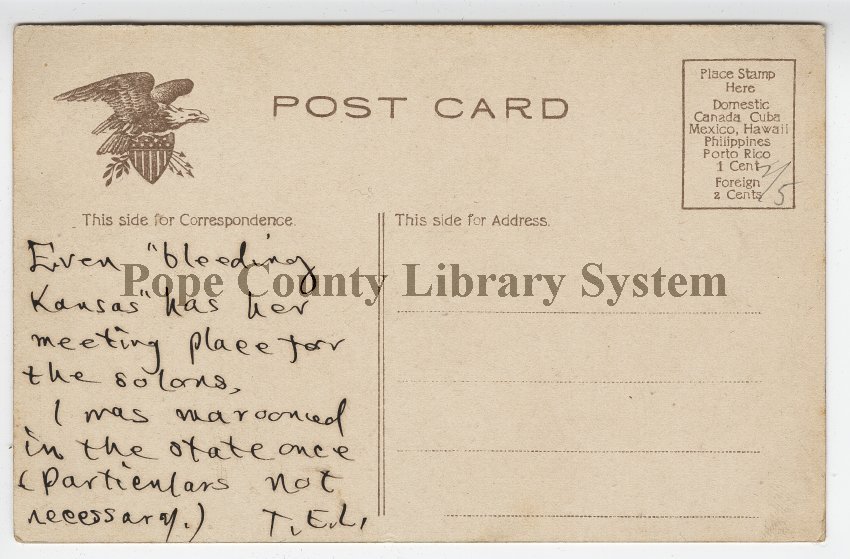 POST CARD
Place Stamp
Here
Domestic
Canada Cuba
Mexico, Hawaii
Philippines
Porto Rico
1 Cent
Foreign
2 Cents
This side for Correspondence.
This side for Address.
Even "bleeding
Kansas" has her
meeting place for
the solons,
I was marooned
in the state once
(Particulars not
necessary.) T.E.L.
Pope County Library System